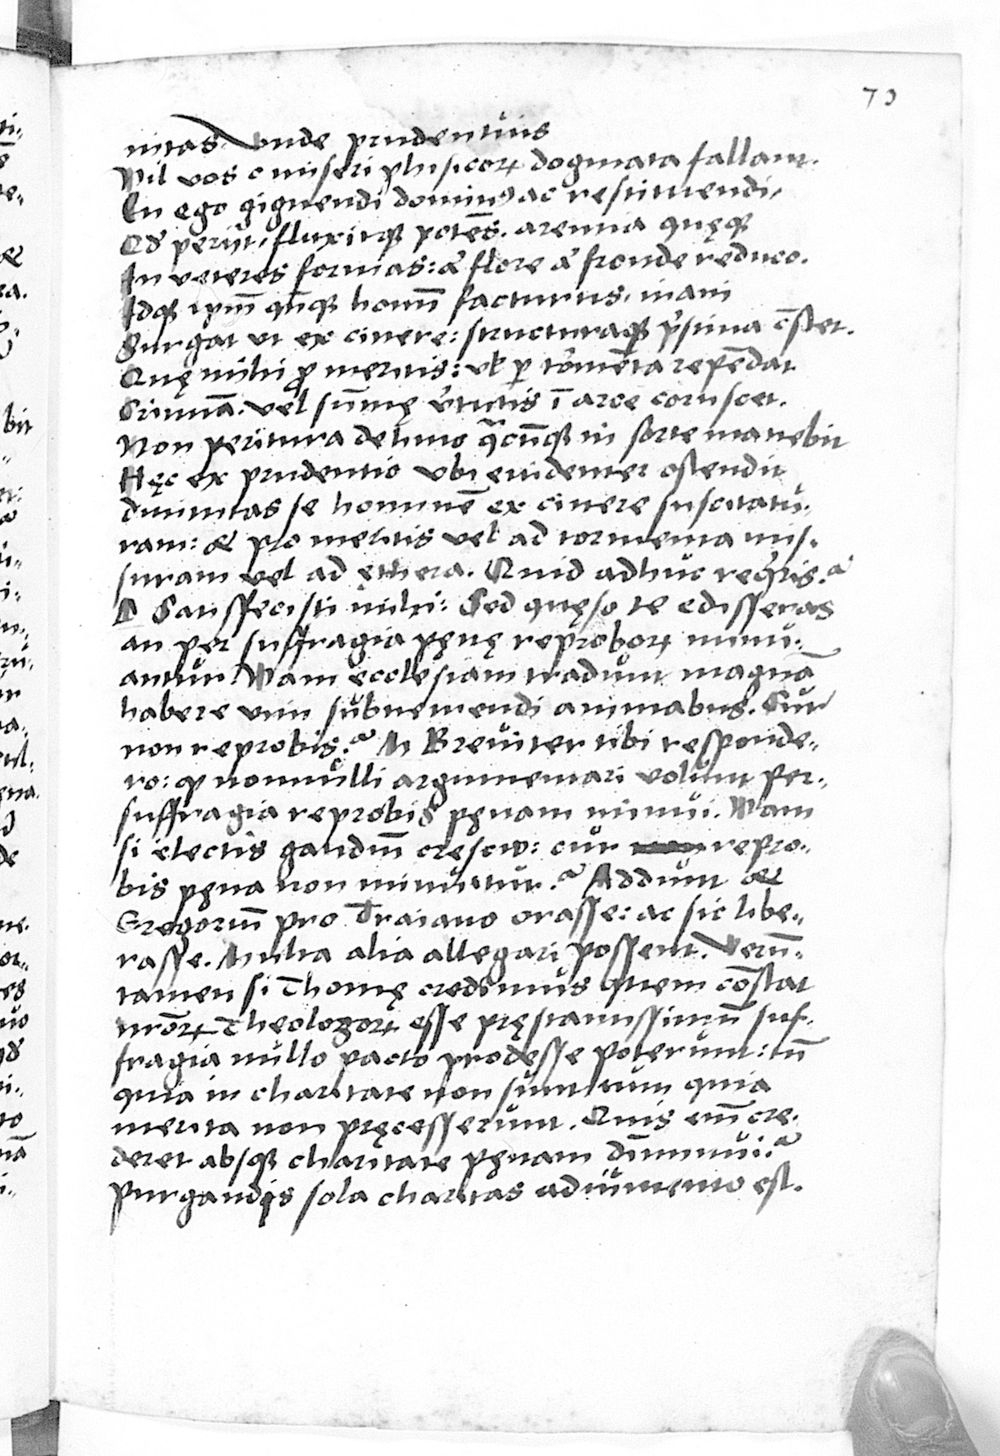 73
nitas. Vnde prudentius
Nil vos o miseri phisicorꝝ dogmata fallant.
En ego gignendi dominꝰ ac restituendi,
Qđ perijt, fluxitqꝫ potēs. arentia quęqꝫ
In veteres formas: & flore & fronde reduco.
Idqꝫ ipm̄ qn̄qꝫ homī facturus. inani
Surgat vt ex cinere: structuraqꝫ pͥstina cōstet.
Quę mihi ꝓ meritis: vl ꝑ tormēta repēdat
Crimina. vel sūmę vͥtutis ī arce coruscet.
Non peritura dehinc qͣcūqꝫ in sorte manebit
Hęc ex prudentio vbi euidenter ostendit
diuinitas se hominē ex cinere suscitatu-
ram: & pro meritis vel ad tormenta mis-
suram vel ad ęthera. Quid adhuc reqͥris?
D Satisfecisti mihi: Sed quęso te edisseras
an per suffragia pęnę reproborꝝ minu-
antur. Nam ecclesiam tradunt magnā
habere vim subueniendi animabus. Cur
non reprobis? M Breuiter tibi responde-
ro: qͥ nonnulli argumentari volunt per
suffragia reprobis pęnam minui. Nam
si electis gaudiū crescit: cur repro-
bis pęna non minuitur? Addunt &
Gregoriū pro Traiano orasse: ac sic libe-
rasse. Multa alia allegari possent. Verū-
tamen si Thomę credimus quem cōstat
nrōrꝝ Theologorꝝ esse pręstantissimū suf-
fragia nullo pacto prodesse poterunt: tū
quia in charitate non sunt tum quia
merita non pręcesserunt. Quis enī cre-
deret absqꝫ charitate pęnam dīminui?
Purgandis sola charitas adiumento est.